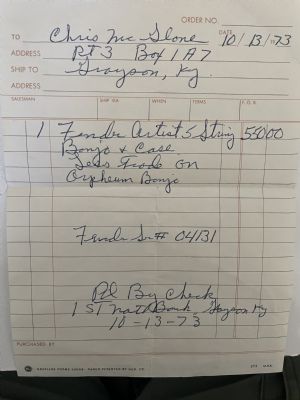 ORDER NO.
TO Chris Mc Glone DATE 10/13/73
ADDRESS Rt 3 Box 1A7
SHIP TO Grayson, Ky.
ADDRESS
SALESMAN SHIP VIA WHEN TERMS F. O. B.
1 Fender Artist 5 String 550 00
Banjo & Case
Less Trade On
Orpheum Banjo
Fender Ser# 04131
Pd By Check
1st Natl Bank, Grayson Ky
10-13-73
PURCHASED BY